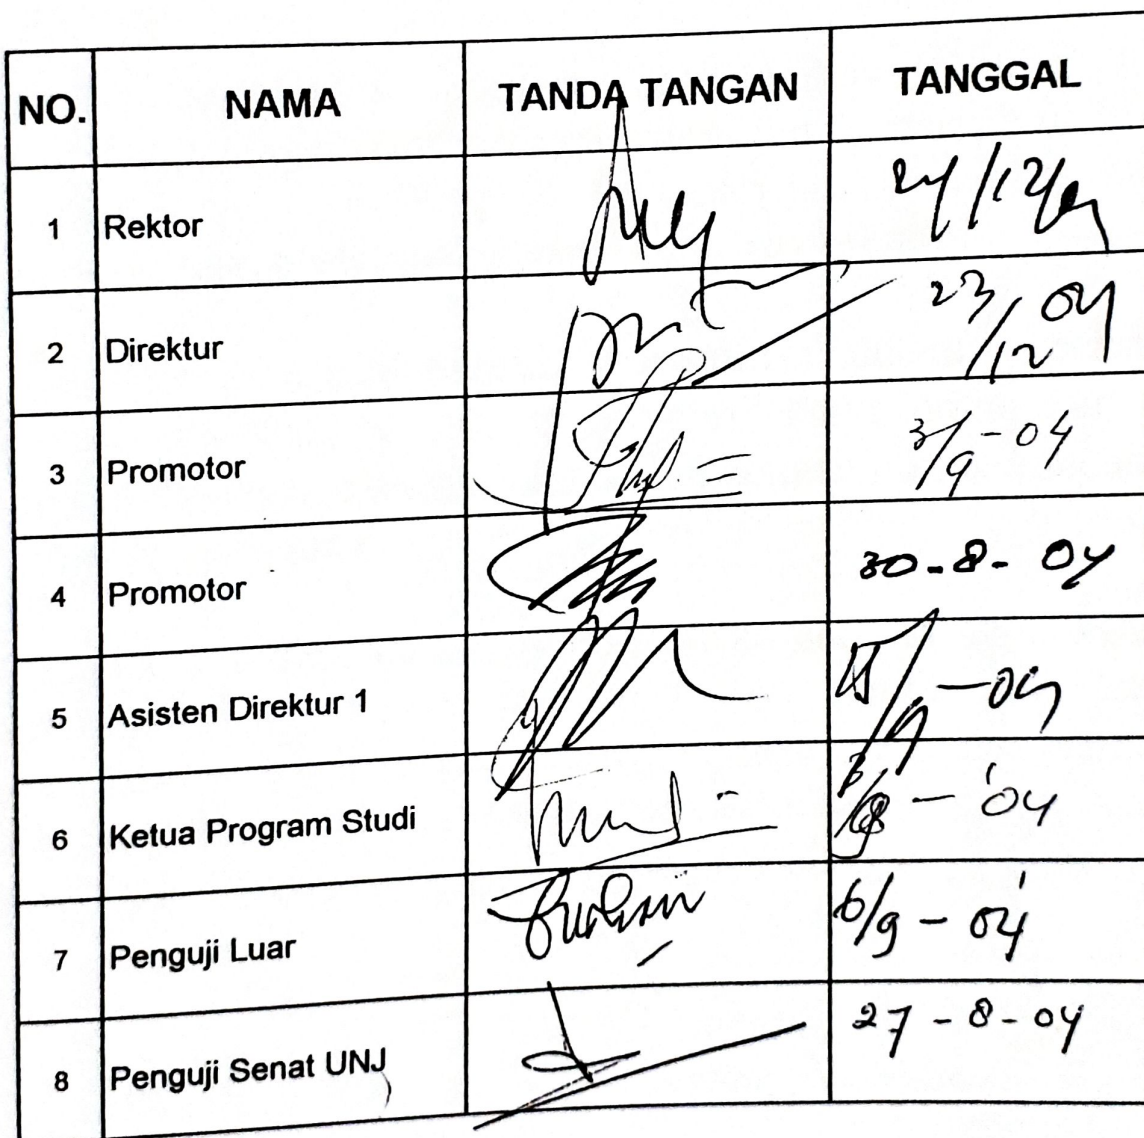 NO. NAMA TANDA TANGAN TANGGAL
1 Rektor 24/12/04
2 Direktur 23/12 04
3 Promotor 3/9 - 04
4 Promotor 30 - 8 - 04
5 Asisten Direktur 1 - 04
6 Ketua Program Studi - '04
7 Penguji Luar 6/9 - 04
8 Penguji Senat UNJ 27 - 8 - 04